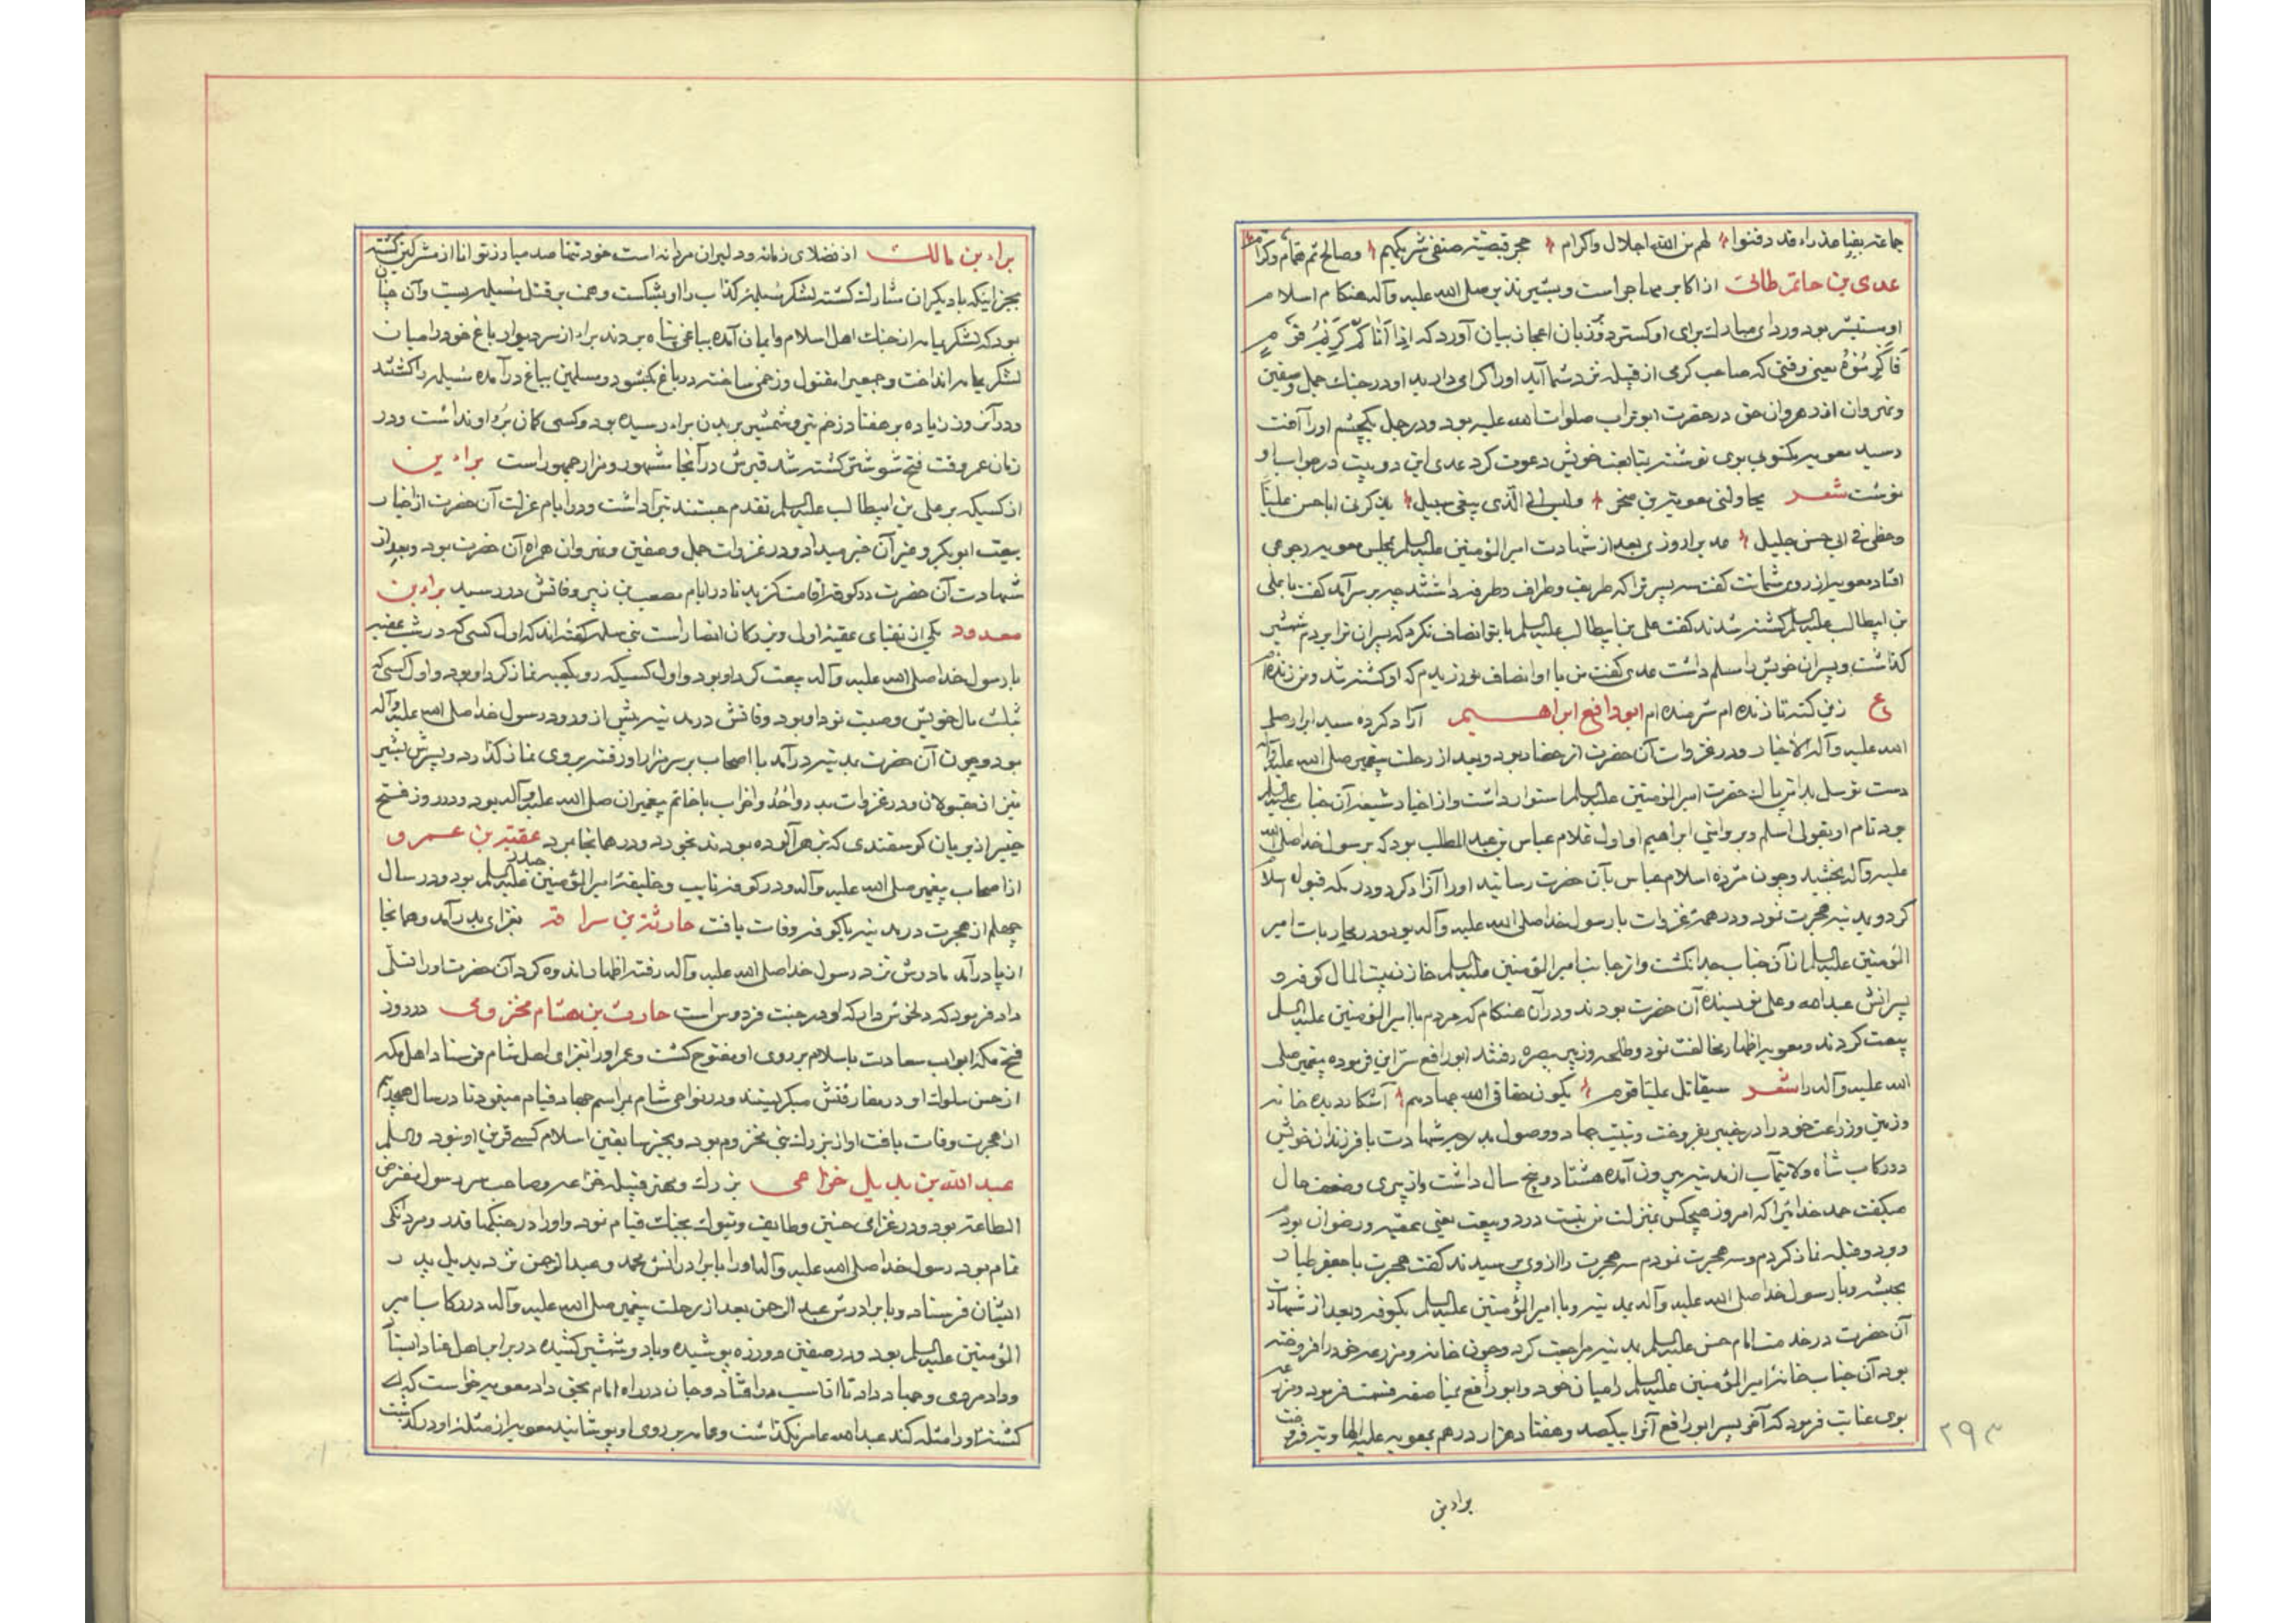 جماعة بفيا عذراء قد دفنوا لهم من الله اجلال واکرام حجر قبیصة صیفی شریکهم وصالح ثم همام وکرام
عدی بن حاتم طائی از اکابر مهاجر است و بشیر نذیر صلی الله علیه وآله هنکام اسلام
او مستبشر بود و ردای مبارک برای او کسترد و زبان اعجاز بیان آورد که اذا اتاکم کریم قوم
فاکرموه یعنی وقتی که صاحب کرمی از قبیله نزد شما آید او را کرامی دارید او در جنک جمل و صفین
و نهروان از رهروان حق در حضرت ابوتراب صلوات الله علیه بود و در جمل یکچشم او را آفت
رسید معویه مکتوبی بوی نوشته بمتابعت خویش دعوت کرد عدی این دو بیت در جواب او
نوشت شعر یحاولنی معویة بن صخر ولیس الی الذی یبغی سبیل یذکرنی ابا حسن علیا
وحظی فی ابی حسن جلیل عدی را روزی بعد از شهادت امیر المؤمنین علیه السلم بمجلس معویه رجوعی
افتاد معویه از روی شماتت کفت سه پسر ترا که طریف وطراف وطرفه داشتند چه بر سر آمد کفت با علی
بن ابیطالب علیه السلم کشته شدند کفت علی بن ابیطالب علیه السلم با تو انصاف نکرد که پسران ترا بدم شمشیر
کذاشت و پسران خویش را مسلم داشت عدی کفت من با او انصاف نورزیدم که او کشته شد و من زنده‌ام
ع زین کنه تا زنده‌ام شرمنده‌ام ابو رافع ابراهیم آزاد کرده سید ابرار صلی
الله علیه وآله الاخیار و در غزوات آن حضرت از حضار بود و بعد از رحلت پیغمبر صلی الله علیه وآله
دست توسل بدامن پاک حضرت امیر المؤمنین علیه السلم استوار داشت و از اخیار شیعه آن جناب علیه السلم
بود نام او بقولی اسلم و بروایتی ابراهیم او اول غلام عباس بن عبد المطلب بود که برسول خدا صلی الله
علیه وآله بخشید و چون مژده اسلام عباس بآن حضرت رسانید او را آزاد کرد و در مکه قبول اسلام
کرد و بمدینه هجرت نمود و در همه غزوات با رسول خدا صلی الله علیه وآله بود و در محاربات امیر
المؤمنین علیه السلم از آن جناب جدا نکشت و از جانب امیر المؤمنین علیه السلم خازن بیت المال کوفه و
پسرانش عبد الله و علی نویسنده آن حضرت بودند و در آن هنکام که مردم با امیر المؤمنین علیه السلم
بیعت کردند و معویه اظهار مخالفت نمود و طلحه و زبیر ببصره رفتند ابو رافع سر این فرموده پیغمبر صلی
الله علیه وآله را شعر سیقاتل علیا قوم یکون حقا فی الله جهادهم آشکار دیده خانه
و زمین و زراعت خود را در خیبر بفروخت و بنیت جهاد و وصول بدرجه شهادت با فرزندان خویش
در رکاب شاه ولایتمآب از مدینه بیرون آمده هشتاد و پنج سال داشت و از پیری و ضعف حال
میکفت حمد خدائیرا که امروز هیچکس بمنزلت من نیست در دو بیعت یعنی عقبه و رضوان بودم
و بدو قبله نماز کردم و سه هجرت نمودم سه هجرت را از وی پرسیدند کفت هجرت با جعفر طیار
بحبشه و با رسول خدا صلی الله علیه وآله بمدینه و با امیر المؤمنین علیه السلم بکوفه و بعد از شهادت
آن حضرت در خدمت امام حسن علیه السلم بمدینه مراجعت کرد و چون خانه و مزرعه خود را فروخته
بود آن جناب خانه امیر المؤمنین علیه السلم را میان خود و ابو رافع بمناصفه قسمت فرمود و مزرعه
بوی عنایت فرمود که آخر پسر ابو رافع آنرا بیکصد و هفتاد هزار درهم بمعویه علیه الهاویه فروخت
براء بن
۲۹۳
براء بن مالک از فضلای زمانه و دلیران مردانه است خود بتنها صد مبارز توانا از مشرکین کشته
بجز اینکه با دیکران مشارک کشته لشکر مسیلمه کذاب را او بشکست و همت بر قتل مسیلمه بست و آن چنان
بود که لشکر یمامه از جنک اهل اسلام و ایمان آمده بباغی پناه بردند براء از سر دیوار باغ خود را میان
لشکر یمامه انداخت و جمعی را مقتول و زخمی ساخته در باغ بکشود و مسلمین بباغ در آمده مسیلمه را کشتند
و در آنروز زیاده بر هفتاد زخم تیر و شمشیر بر بدن براء رسیده بود و کسی کمان برء او نداشت و در
زمان عمر وقت فتح شوشتر کشته شد قبرش در آنجا مشهور و مزار جمهور است براء بن
از کسیکه بر علی بن ابیطالب علیه السلم تقدم جستند تبرا داشت و در ایام عزلت آن حضرت از اخبار
بیعت ابو بکر و غیر آن خبر میداد و در غزوات جمل و صفین و نهروان همراه آن حضرت بود و بعد از
شهادت آن حضرت در کوفه اقامت کزید تا در ایام مصعب بن زبیر وفاتش در رسید براء بن
معدود یکی از نقبای عقبه اولی و بزرکان انصار است بنی سلمه کفته‌اند که اول کسی که در شب عقبه
با رسول خدا صلی الله علیه وآله بیعت کرد او بود و اول کسیکه رو بکعبه نماز کرد او بود و اول کسی که
ثلث مال خویش وصیت نمود او بود وفاتش در مدینه پیش از ورود رسول خدا صلی الله علیه وآله
بود و چون آن حضرت بمدینه در آمد با اصحاب بر سر مزار او رفته بر وی نماز کذارد و پسرش بشیر
نیز از مقبولان و در غزوات بدر و احد و احزاب با خاتم پیغمبران صلی الله علیه وآله بود و در روز فتح
خیبر از بریان کوسفندی که بزهر آلوده بودند بخورد و در همانجا بمرد عقبة بن عمرو
از اصحاب پیغمبر صلی الله علیه وآله و در کوفه نایب و خلیفه امیر المؤمنین حیدر علیه السلم بود و در سال
چهلم از هجرت در مدینه یا کوفه وفات یافت حارثة بن سراقة بغزای بدر آمد و همانجا
از پا در آمد مادرش نزد رسول خدا صلی الله علیه وآله رفته اظهار اندوه کرد آن حضرت او را تسلی
داد فرمود که دلخوش دار که او در جنت فردوس است حارث بن هشام مخزومی در روز
فتح مکه ابواب سعادت باسلام بر روی او مفتوح کشت و عمر او را بغزای اهل شام فرستاد اهل مکه
از حسن سلوک او در مفارقتش میکریستند و در نواحی شام بمراسم جهاد قیام مینمود تا در سال هجدهم
از هجرت وفات یافت او از بزرک بنی مخزوم بود و بجز سابقین اسلام کسی قرین او نبود والسلم
عبد الله بن بدیل خزاعی بزرک و مهتر قبیله خزاعه و صاحب سر رسول مفترض
الطاعة بود و در غزای حنین و طایف و تبوک بجنک قیام نمود و او را در جنکها قدر و مردانکی
تمام بود رسول خدا صلی الله علیه وآله او را با برادرانش محمد و عبد الرحمن نزد بدیل پدر
ایشان فرستاد و با برادرش عبد الرحمن بعد از رحلت پیغمبر صلی الله علیه وآله در رکاب امیر
المؤمنین علیه السلم بود و در صفین دو زره پوشیده و با دو شمشیر کشیده در برابر اهل عناد ایستاد
و داد مردی و جهاد داد تا از اسب در افتاد و جان در راه امام بحق داد معویه خواست که
کشته او را مثله کند عبد الله عامر نکذاشت و عمامه بر روی او پوشانید معویه از مثله او در کذشت